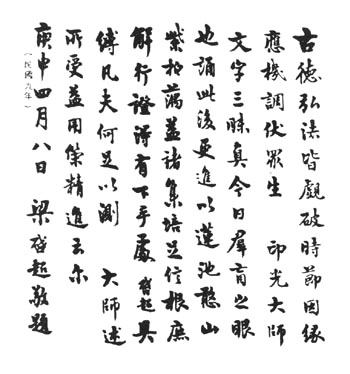 古德弘法皆覷破時節因緣
應機調伏眾生 印光大師
文字三昧真今日羣盲之眼
也誦此後更進以蓮池憨山
紫柏蕅益諸集培足信根庶
解行證得有下手處啟超具
縛凡夫何足以測 大師述
所受益用策精進云爾
庚申四月八日 梁啟超敬題
(民國九年)